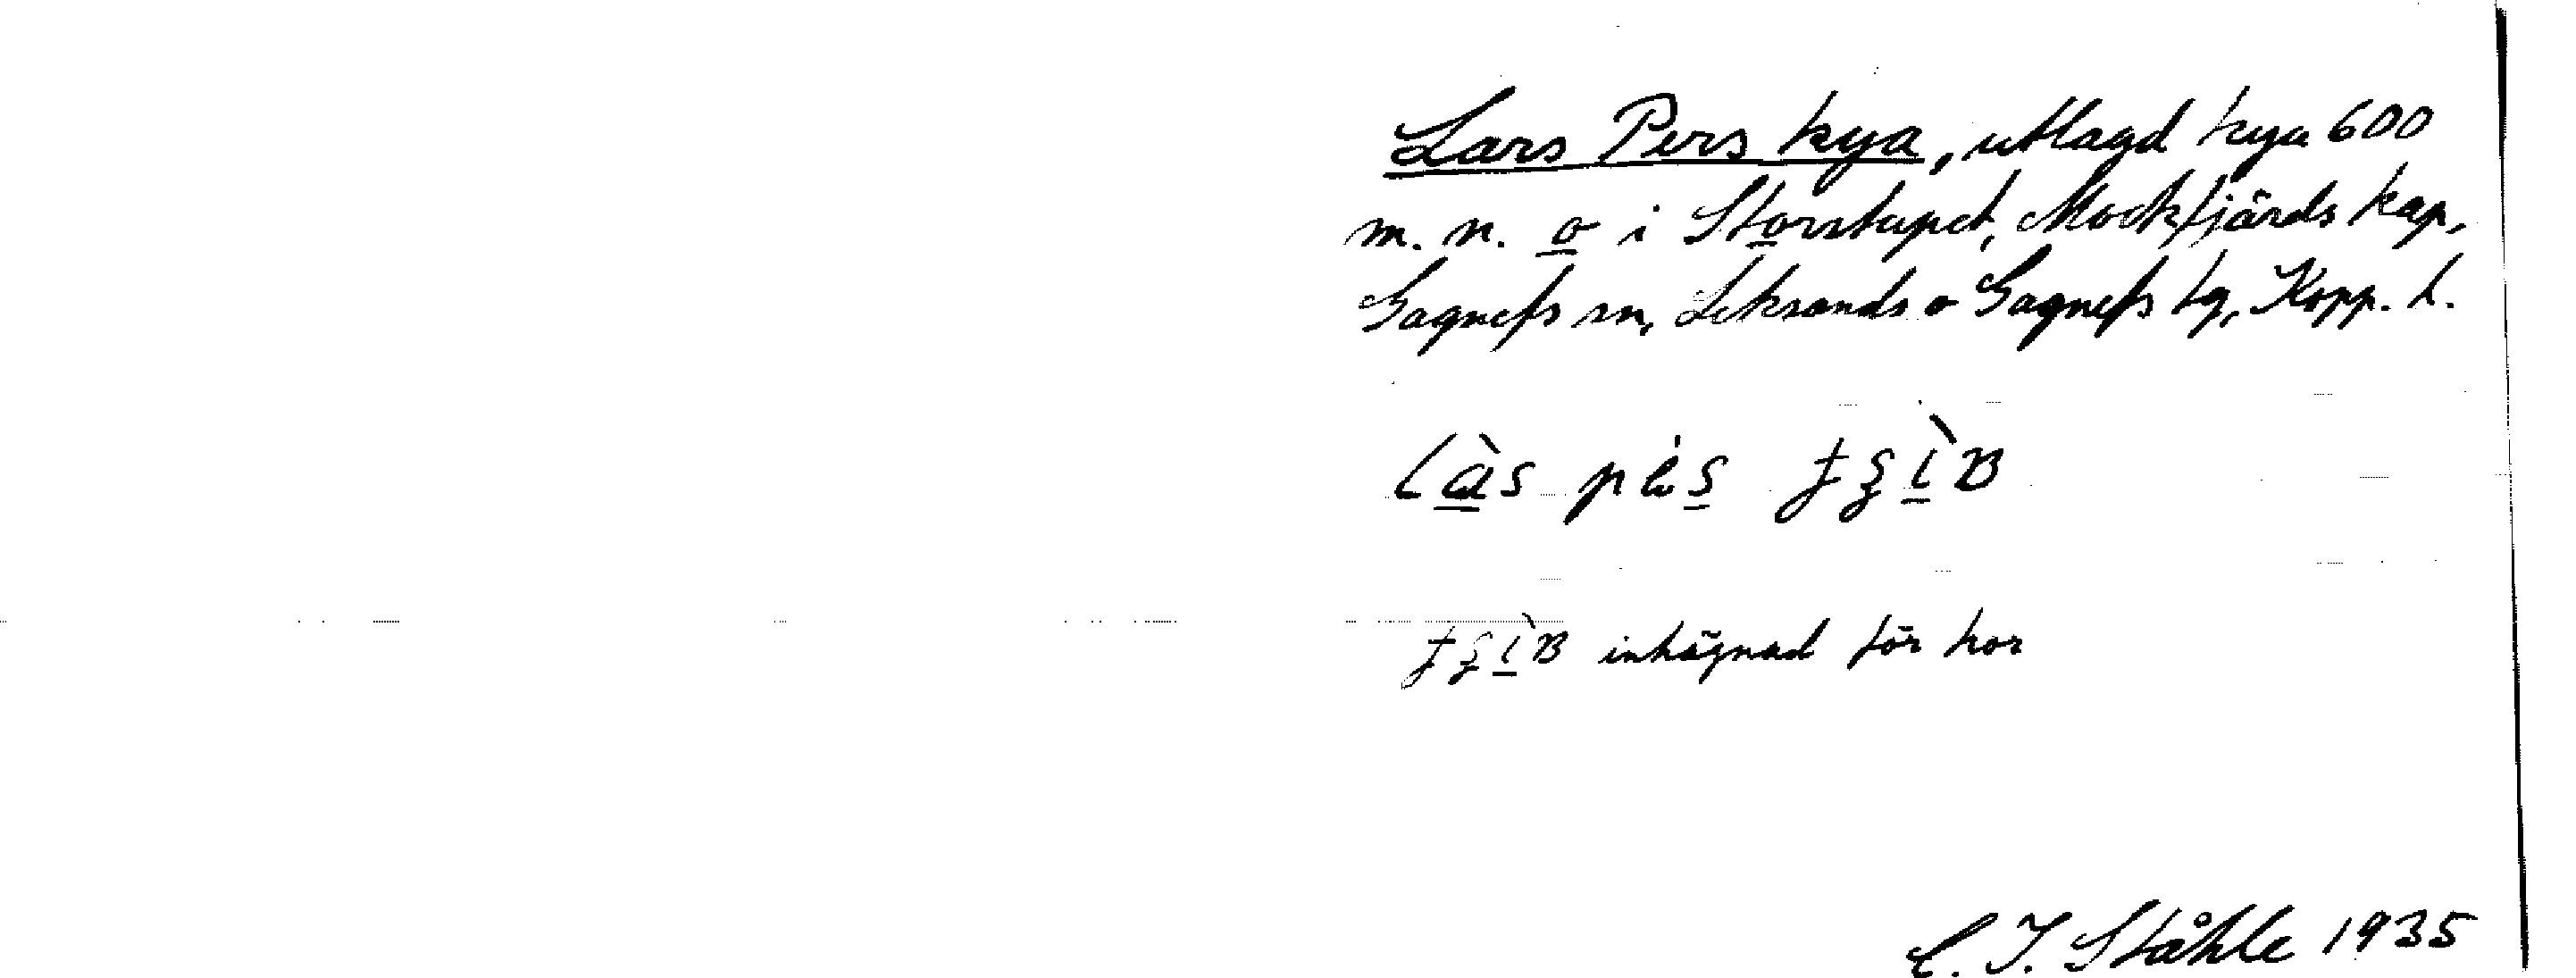 Lars Pers kya, utlagd kya 600
m. n. o i Storstupet, Mockfjärds kap,
Gagnefs sn, Leksands o Gagnefs tg, Kopp. l.
inhägnad för kor
C. I. Ståhle 1935